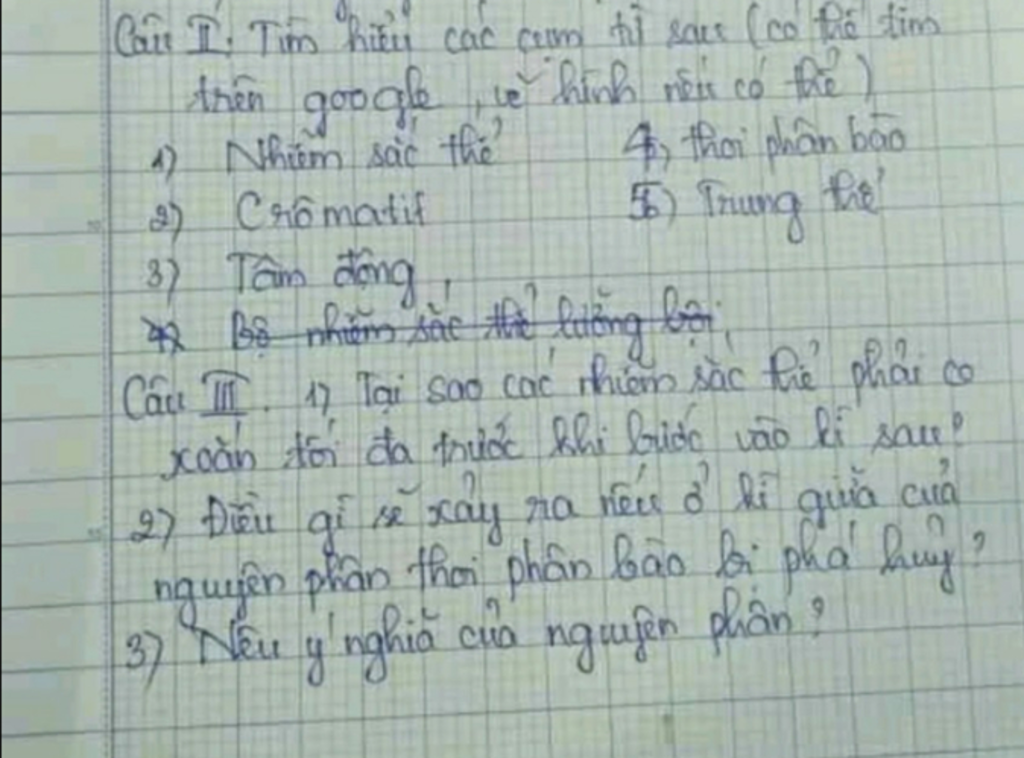 Câu II: Tìm hiểu các cụm từ sau (có thể tìm
trên google, vẽ hình nếu có thể)
1) Nhiễm sắc thể
4) thoi phân bào
2) Crômatit
5) Trung thể
3) Tâm động,
Bộ nhiễm sắc thể lưỡng bội,
Câu III. 1) Tại sao các nhiễm sắc thể phải co
xoắn tối đa trước khi bước vào kì sau?
2) Điều gì sẽ xảy ra nếu ở kì giữa của
nguyên phân thoi phân bào bị phá huỷ?
3) Nêu ý nghĩa của nguyên phân?